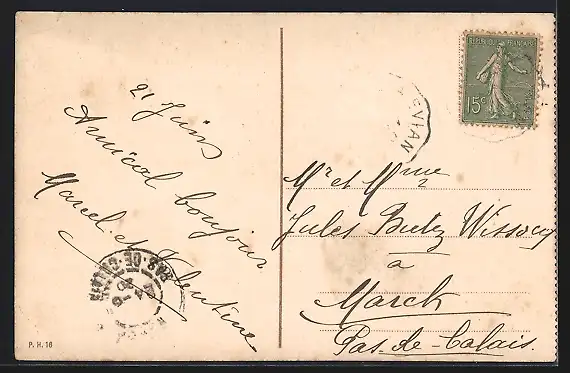 21 Juin
Amical bonjour
Marcel et Valentine
PAS-DE-CALAIS
P. H. 16
REPUBLIQUE FRANÇAISE
15c
EVIAN
Mr et Mme
Jules Butez Wissocq
à
Marck
Pas-de-Calais.